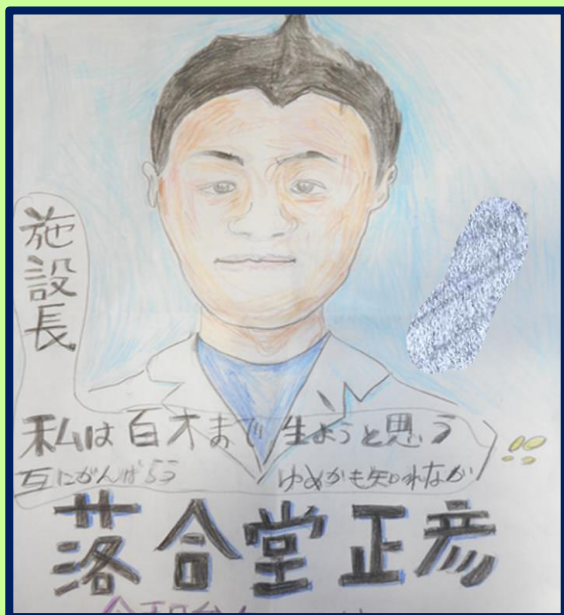 施設長
私は百才まで生ようと思う
互にがんばろう
ゆめかも知れなか
落合堂正彦